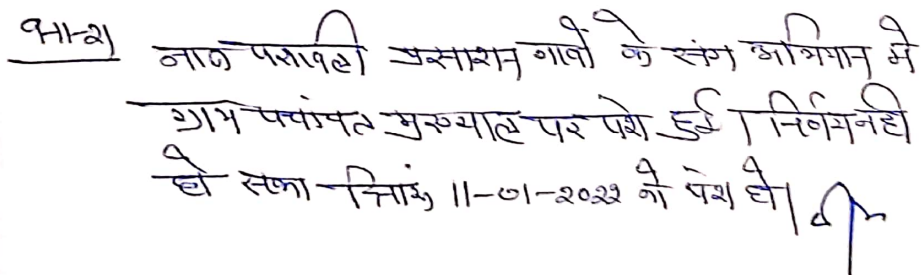 आज पत्रावली प्रसाशन गावों के संग अभियान मे
ग्राम पचांयत मुख्यालय पर पेश हुई । निर्णय नही
हो सका दिनांक 11-01-2022 को पेश हो।